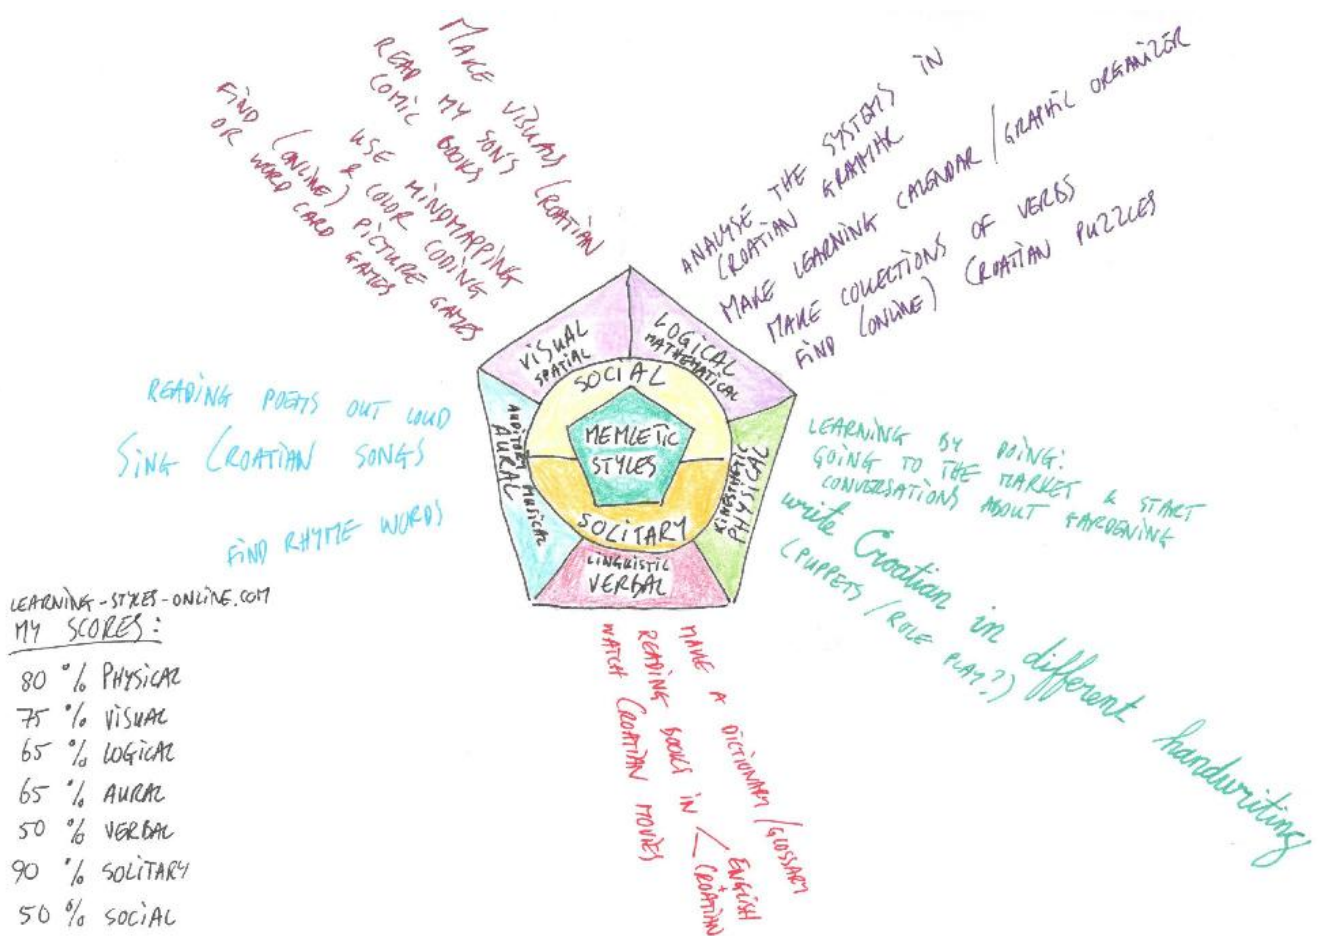 MAKE VISUALS
READ MY SON'S CROATIAN
COMIC BOOKS
USE MINDMAPPING
& COLOR CODING
FIND (ONLINE) PICTURE GAMES
OR WORD CARD GAMES
ANALYSE THE SYSTEMS IN
CROATIAN GRAMMAR
MAKE LEARNING CALENDAR / GRAPHIC ORGANIZER
MAKE COLLECTIONS OF VERBS
FIND (ONLINE) CROATIAN PUZZLES
VISUAL
SPATIAL
LOGICAL
MATHEMATICAL
SOCIAL
MEMLETIC
STYLES
SOLITARY
AUDITORY MUSICAL
AURAL
KINESTHETIC
PHYSICAL
LINGUISTIC
VERBAL
READING POEMS OUT LOUD
SING CROATIAN SONGS
FIND RHYME WORDS
LEARNING BY DOING:
GOING TO THE MARKET & START
CONVERSATIONS ABOUT GARDENING
write Croatian in different handwriting
(PUPPETS / ROLE PLAY?)
MAKE A DICTIONARY / GLOSSARY
READING BOOKS IN < ENGLISH + CROATIAN
WATCH CROATIAN MOVIES
LEARNING-STYLES-ONLINE.COM
MY SCORES:
80 % PHYSICAL
75 % VISUAL
65 % LOGICAL
65 % AURAL
50 % VERBAL
90 % SOLITARY
50 % SOCIAL